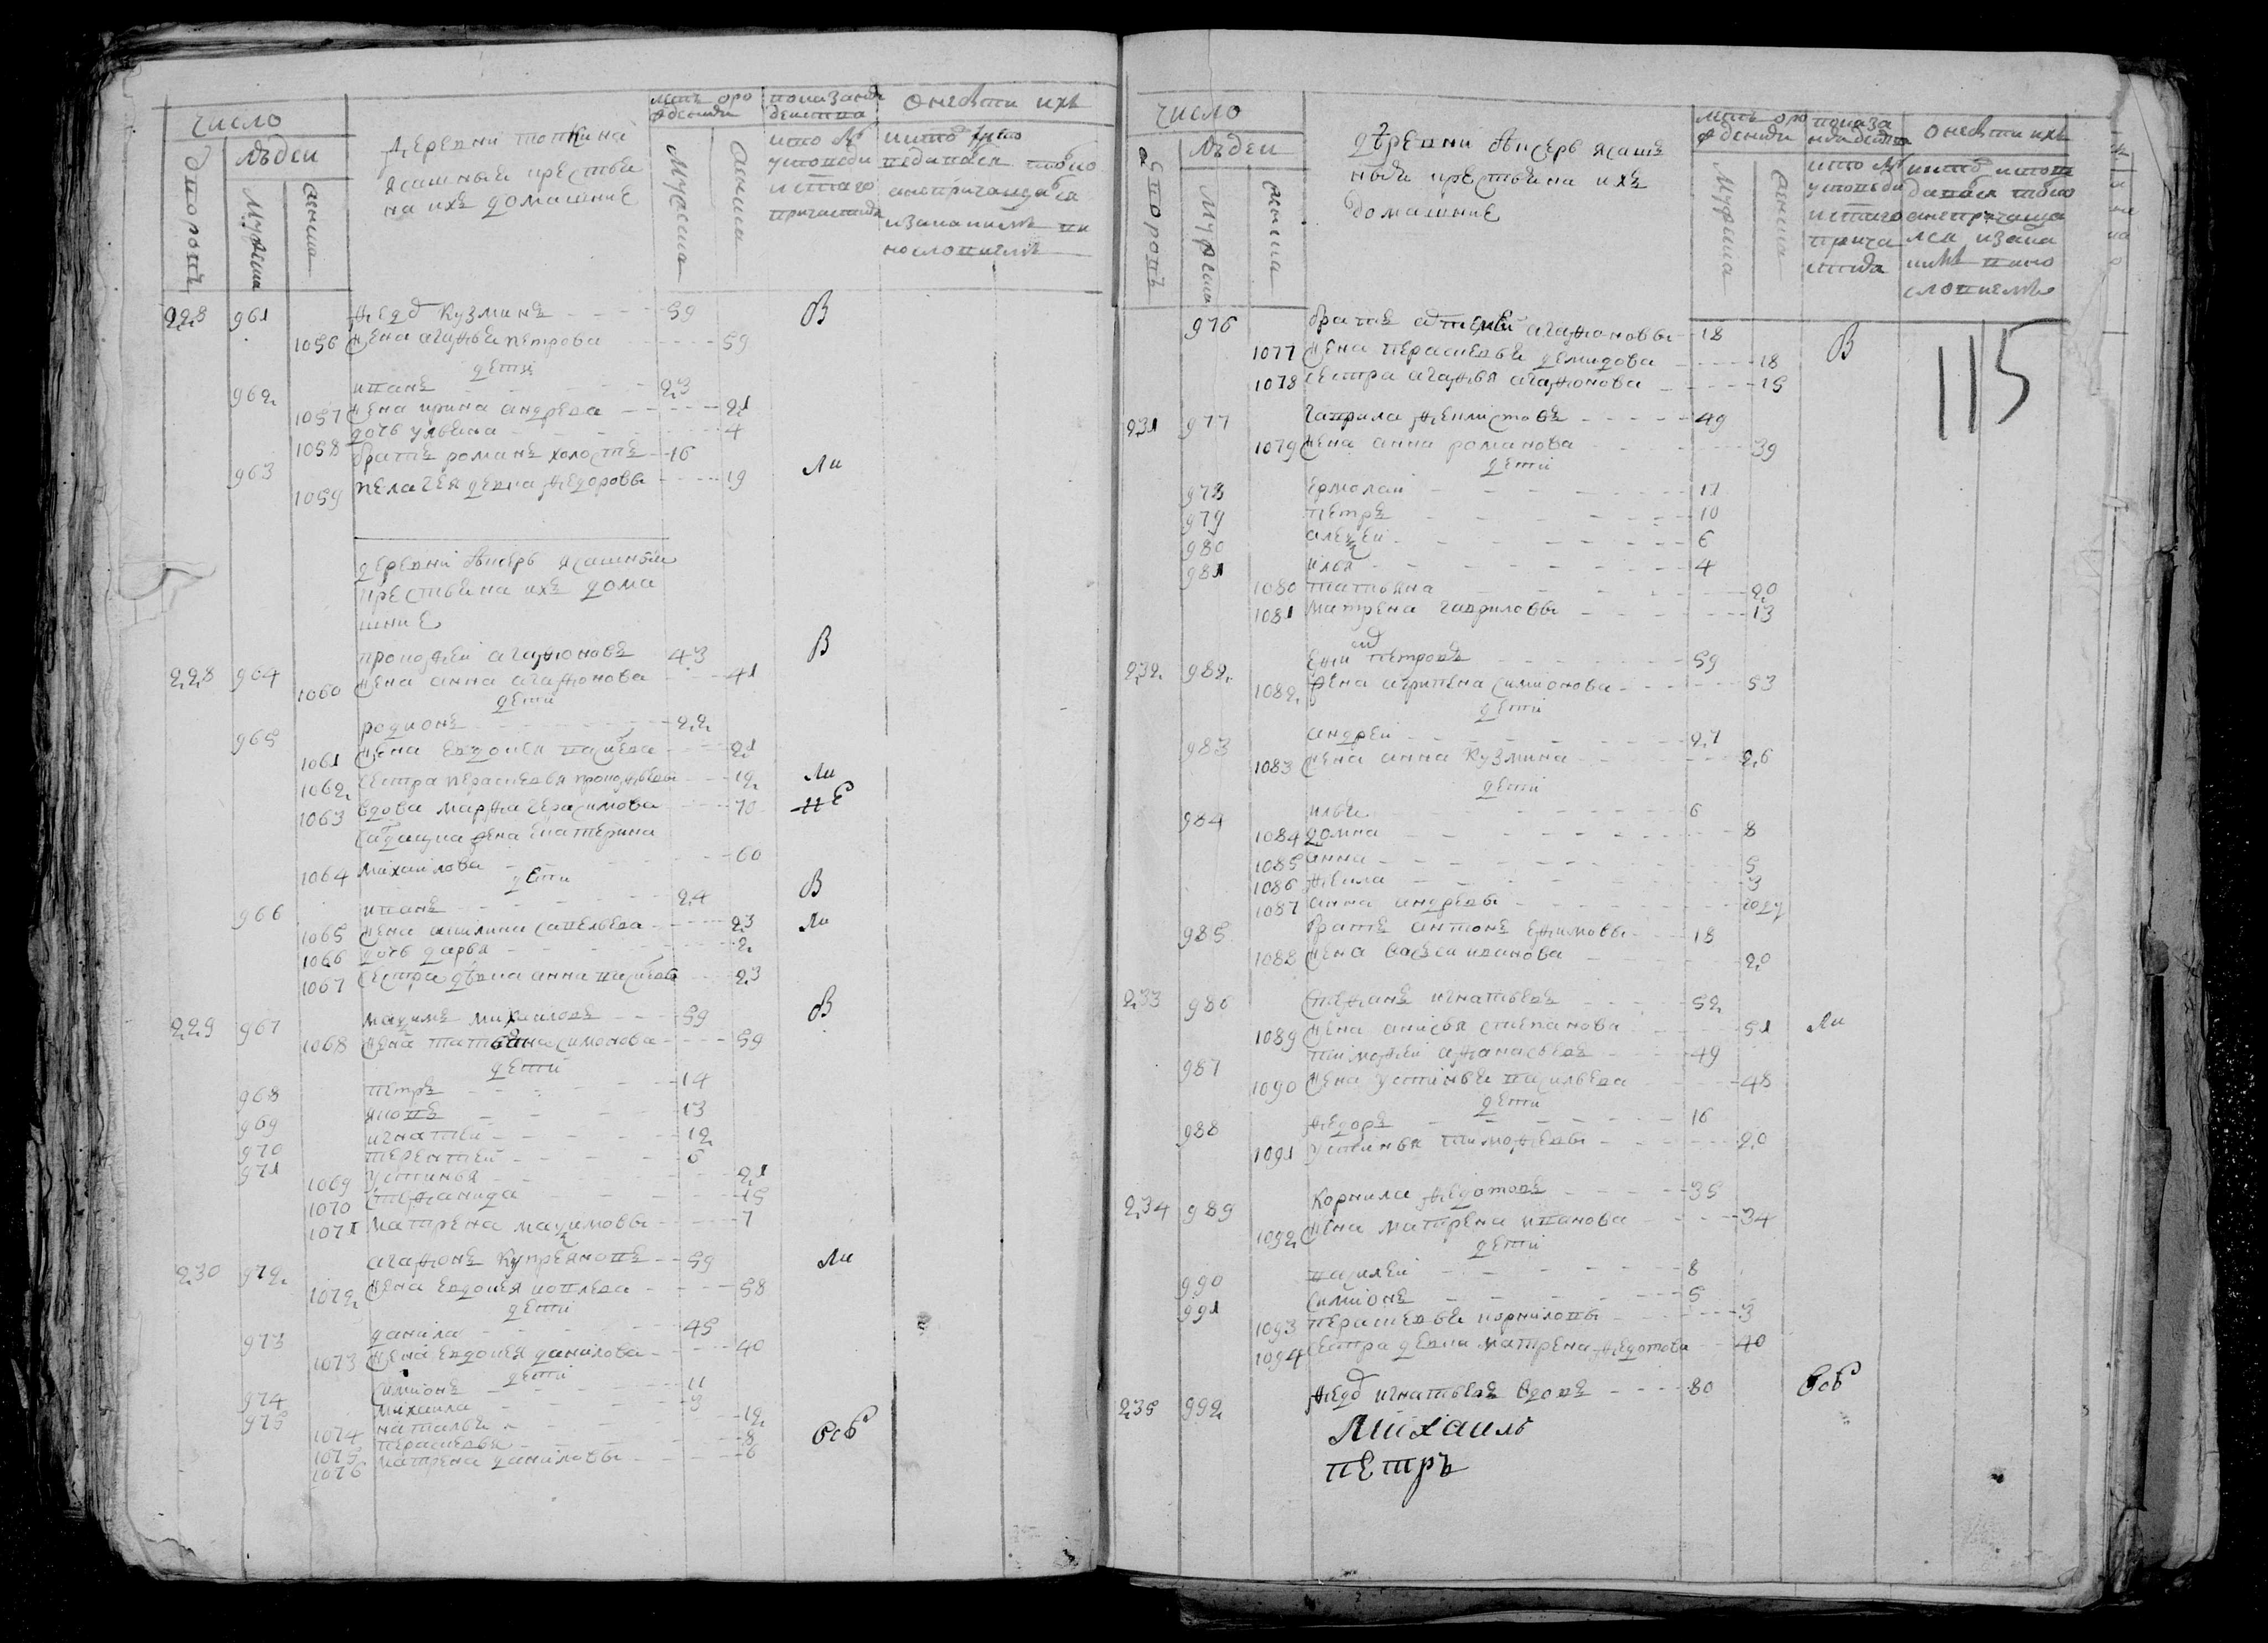 число
людеи
дворовъ
мужеска
женска
деревни топкина
ясашныя крестья
на ихъ домашние
мужеска
женска
о нихъ
228 961 Федоръ кузминъ 59 В
1056 жена агафья петрова 59
дети
962 иванъ 23
1057 жена ирина андреева 21
дочь ульяна 4
1058 братъ романъ холостъ 16
963
1059 пелагея девка федоровы 19 ли
деревни ясашныя
крестьяна ихъ дома
шние
228 964 прокофеи агафоновъ 43 В
1060 жена анна агафонова 41
дети
965 родионъ 22
1061 жена евдокея 21
1062 сестра парасковья прокофьевы 12 ли
1063 вдова марфа герасимова 70 не
салдацка жена екатерина
1064 михаилова 60
дети
966 иванъ 24 В
1065 жена акилина савельева 23 ли
1066 дочь дарья 2
1067 сестра девка анна 23
229 967 максимъ михаиловъ 59 В
1068 жена татьяна симонова 59
дети
968 петръ 14
969 яковъ 13
970 игнатеи 12
971 терентеи 6
1069 устинья 21
1070 стефанида 15
1071 матрена максимовы 7
230 972 агафонъ купреяновъ 59 ли
1072 жена евдокея 58
дети
973 данила 45
1073 жена евдокея данилова 40
дети
974 симионъ 11
975 михаила 3
1074 наталья 12
1075 парасковья 8 боб
1076 матрена даниловы 6
число
людеи
дворовъ
мужеска
женска
деревни ясаш
ныя крестьяна ихъ
домашние
мужеска
женска
о нихъ
115
976 братъ агафоновы 18
1077 жена парасковья демидова 18 В
1078 сестра агафья агафонова 15
231 977 гаврила феклистовъ 49
1079 жена анна романова 39
дети
978 ермолаи 17
979 петръ 10
980 алексеи 6
981 илья 4
1080 татьяна 20
1081 матрена гавриловы 13
232 982 ефим петровъ 59
1082 жена агрипена симионова 53
дети
983 андреи 27
1083 жена анна кузмина 26
дети
984 илья 6
1084 домна 8
1085 анна 5
1086 фекла 3
1087 анна андреевы году
985 братъ антонъ ефимовы 18
1088 жена васса иванова 20
233 986 стефанъ игнатьевъ 52
1089 жена анисья степанова 51 ли
987 тимофеи афанасьевъ 49
1090 жена устинья васильева 48
дети
988 федоръ 16
1091 устинья тимофеевы 20
234 989 корнила федотовъ 35
1092 жена матрена иванова 34
дети
990 василеи 8
991 симионъ 5
1093 парасковья корниловы 3
1094 сестра девка матрена федотова 40
235 992 федоръ игнатьевъ вдовъ 80 боб
Михаилъ
петръ